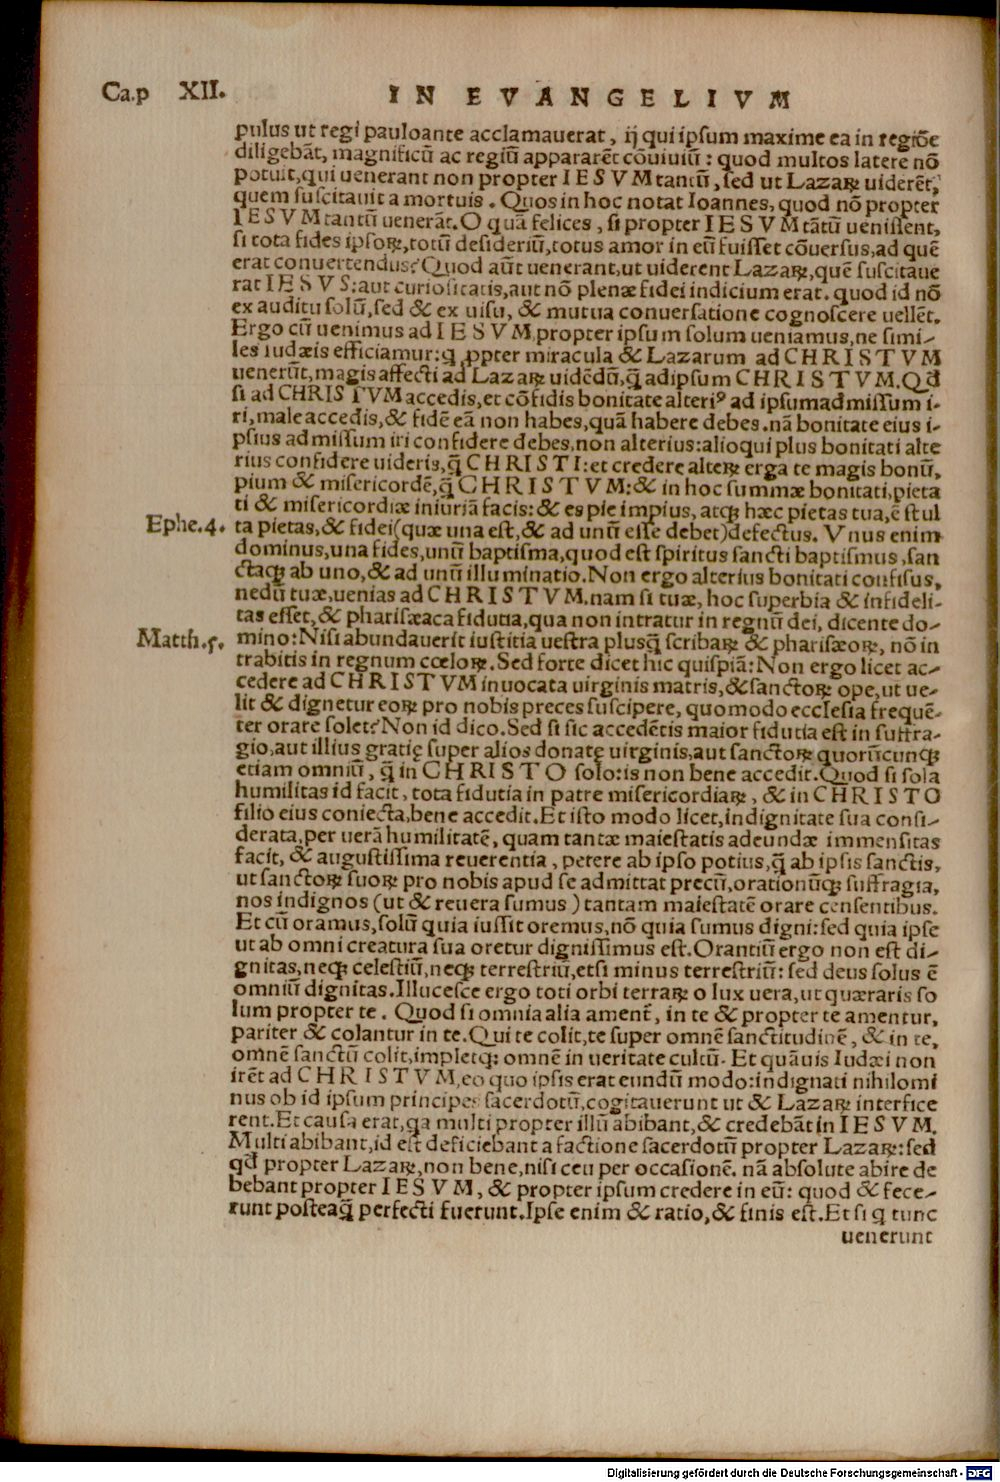 Ca.p XII.
IN EVANGELIVM
pulus ut regi pauloante acclamauerat, ij qui ipsum maxime ea in regiõe
diligebãt, magnificũ ac regiũ appararẽt cõuiuiũ: quod multos latere nõ
potuit, qui uenerant non propter IESVM tantũ, sed ut Lazaꝝ uiderẽt,
quem suscitauit a mortuis. Quos in hoc notat Ioannes, quod nõ propter
IESVM tantũ uenerãt. O quã felices, si propter IESVM tãtũ uenissent,
si tota fides ipsoꝝ, totũ desideriũ, totus amor in eũ fuisset cõuersus, ad quẽ
erat conuertendus? Quod aũt uenerant, ut uiderent Lazaꝝ, quẽ suscitaue
rat IESVS: aut curiositatis, aut nõ plenæ fidei indicium erat. quod id nõ
ex auditu solũ, sed & ex uisu, & mutua conuersatione cognoscere uellẽt.
Ergo cũ uenimus ad IESVM, propter ipsum solum ueniamus, ne simi-
les iudæis efficiamur: q ꝓpter miracula & Lazarum ad CHRISTVM
uenerũt, magis affecti ad Lazaꝝ uidẽdũ, q̃ adipsum CHRISTVM. Qđ
si ad CHRISTVM accedis, et cõfidis bonitate alteriꝰ ad ipsumadmissum i-
ri, male accedis, & fidẽ eã non habes, quã habere debes. nã bonitate eius i-
psius admissum iri confidere debes, non alterius: alioqui plus bonitati alte
rius confidere uideris, q̃ CHRISTI: et credere alteꝝ erga te magis bonũ,
pium & misericordẽ, q̃ CHRISTVM: & in hoc summæ bonitati, pieta
ti & misericordiæ iniuriã facis: & es pie impius, atqꝫ hæc pietas tua, ẽ stul
Ephe.4. ta pietas, & fidei (quæ una est, & ad unũ esse debet) defectus. Vnus enim
dominus, una fides, unũ baptisma, quod est spiritus sancti baptismus, san
ctaqꝫ ab uno, & ad unũ illuminatio. Non ergo alterius bonitati confisus,
nedũ tuæ, uenias ad CHRISTVM. nam si tuæ, hoc superbia & infideli-
tas esset, & pharisæaca fidutia, qua non intratur in regnũ dei, dicente do-
Matth.5. mino: Nisi abundauerit iustitia uestra plusq̃ scribaꝝ & pharisæoꝝ, nõ in
trabitis in regnum cœloꝝ. Sed forte dicet hic quispiã: Non ergo licet ac-
cedere ad CHRISTVM inuocata uirginis matris, & sanctoꝝ ope, ut ue-
lit & dignetur eoꝝ pro nobis preces suscipere, quomodo ecclesia frequẽ-
ter orare solet? Non id dico. Sed si sic accedẽtis maior fidutia est in suffra-
gio, aut illius gratię super alios donatę uirginis, aut sanctoꝝ quorũcunqꝫ
etiam omniũ, q̃ in CHRISTO solo: is non bene accedit. Quod si sola
humilitas id facit, tota fidutia in patre misericordiaꝝ, & in CHRISTO
filio eius coniecta, bene accedit. Et isto modo licet, indignitate sua consi-
derata, per uerã humilitatẽ, quam tantæ maiestatis adeundæ immensitas
facit, & augustissima reuerentia, petere ab ipso potius, q̃ ab ipsis sanctis,
ut sanctoꝝ suoꝝ pro nobis apud se admittat precũ, orationũqꝫ suffragia,
nos indignos (ut & reuera sumus) tantam maiestatẽ orare censentibus.
Et cũ oramus, solũ quia iussit oremus, nõ quia sumus digni: sed quia ipse
ut ab omni creatura sua oretur dignissimus est. Orantiũ ergo non est di-
gnitas, neqꝫ celestiũ, neqꝫ terrestriũ, etsi minus terrestriũ: sed deus solus ẽ
omniũ dignitas. Illucesce ergo toti orbi terraꝝ o lux uera, ut quæraris so
lum propter te. Quod si omnia alia ament̃, in te & propter te amentur,
pariter & colantur in te. Qui te colit, te super omnẽ sanctitudinẽ, & in te,
omnẽ sanctũ colit, impletqꝫ omnẽ in ueritate cultũ. Et quãuis Iudæi non
irẽt ad CHRISTVM, eo quo ipsis erat eundũ modo: indignati nihilomi
nus ob id ipsum principes sacerdotũ, cogitauerunt ut & Lazaꝝ interfice
rent. Et causa erat, qa multi propter illũ abibant, & credebãt in IESVM.
Multi abibant, id est deficiebant a factione sacerdotũ propter Lazaꝝ: sed
qđ propter Lazaꝝ, non bene, nisi ceu per occasionẽ. nã absolute abire de
bebant propter IESVM, & propter ipsum credere in eũ: quod & fece-
runt posteaq̃ perfecti fuerunt. Ipse enim & ratio, & finis est. Et si q tunc
uenerunt
Digitalisierung gefördert durch die Deutsche Forschungsgemeinschaft - DFG